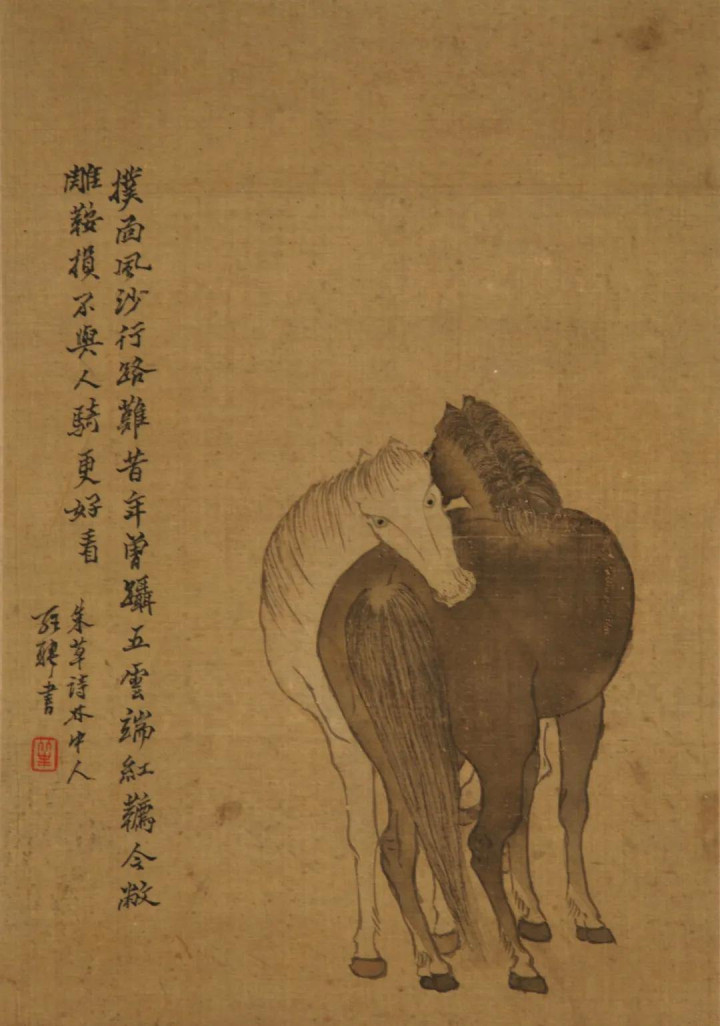 撲面風沙行路難昔年曾躡五雲端紅韉今敝
雕鞍損不與人騎更好看
朱草詩林中人
羅聘書